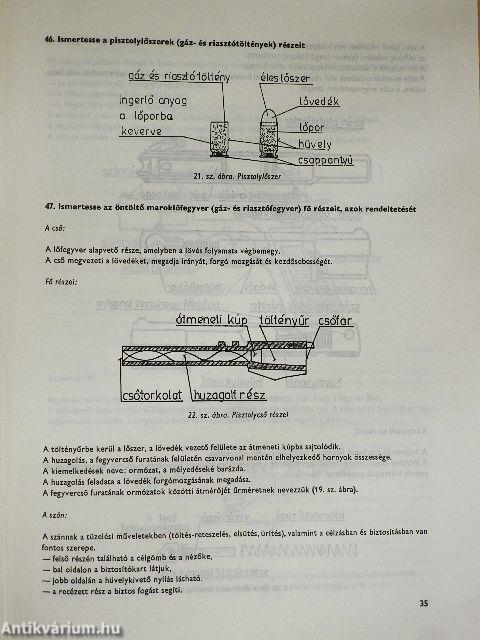 46. Ismertesse a pisztolylőszerek (gáz- és riasztótöltények) részeit
gáz és riasztótöltény
éles lőszer
ingerlő anyag
a lőporba
keverve
lövedék
lőpor
hüvely
csappantyú
21. sz. ábra. Pisztolylőszer
47. Ismertesse az öntöltő maroklőfegyver (gáz- és riasztófegyver) fő részeit, azok rendeltetését
A cső:
A lőfegyver alapvető része, amelyben a lövés folyamata végbemegy.
A cső megvezeti a lövedéket, megadja irányát, forgó mozgását és kezdősebességét.
Fő részei:
átmeneti kúp
töltényűr
csőfar
csőtorkolat
huzagolt rész
22. sz. ábra. Pisztolycső részei
A töltényűrbe kerül a lőszer, a lövedék vezető felülete az átmeneti kúpba sajtolódik.
A huzagolás, a fegyvercső furatának felületén csavarvonal mentén elhelyezkedő hornyok összessége.
A kiemelkedések neve: ormózat, a mélyedéseké barázda.
A huzagolás feladata a lövedék forgómozgásának megadása.
A fegyvercső furatának ormózatok közötti átmérőjét űrméretnek nevezzük (19. sz. ábra).
A szán:
A szánnak a tüzelési műveletekben (töltés-reteszelés, elsütés, ürítés), valamint a célzásban és biztosításban van
fontos szerepe.
— felső részén található a célgömb és a nézőke,
— bal oldalon a biztosítókart látjuk,
— jobb oldalán a hüvelykivető nyílás látható.
— a recézett rész a biztos fogást segíti.
35
Antikvárium.hu